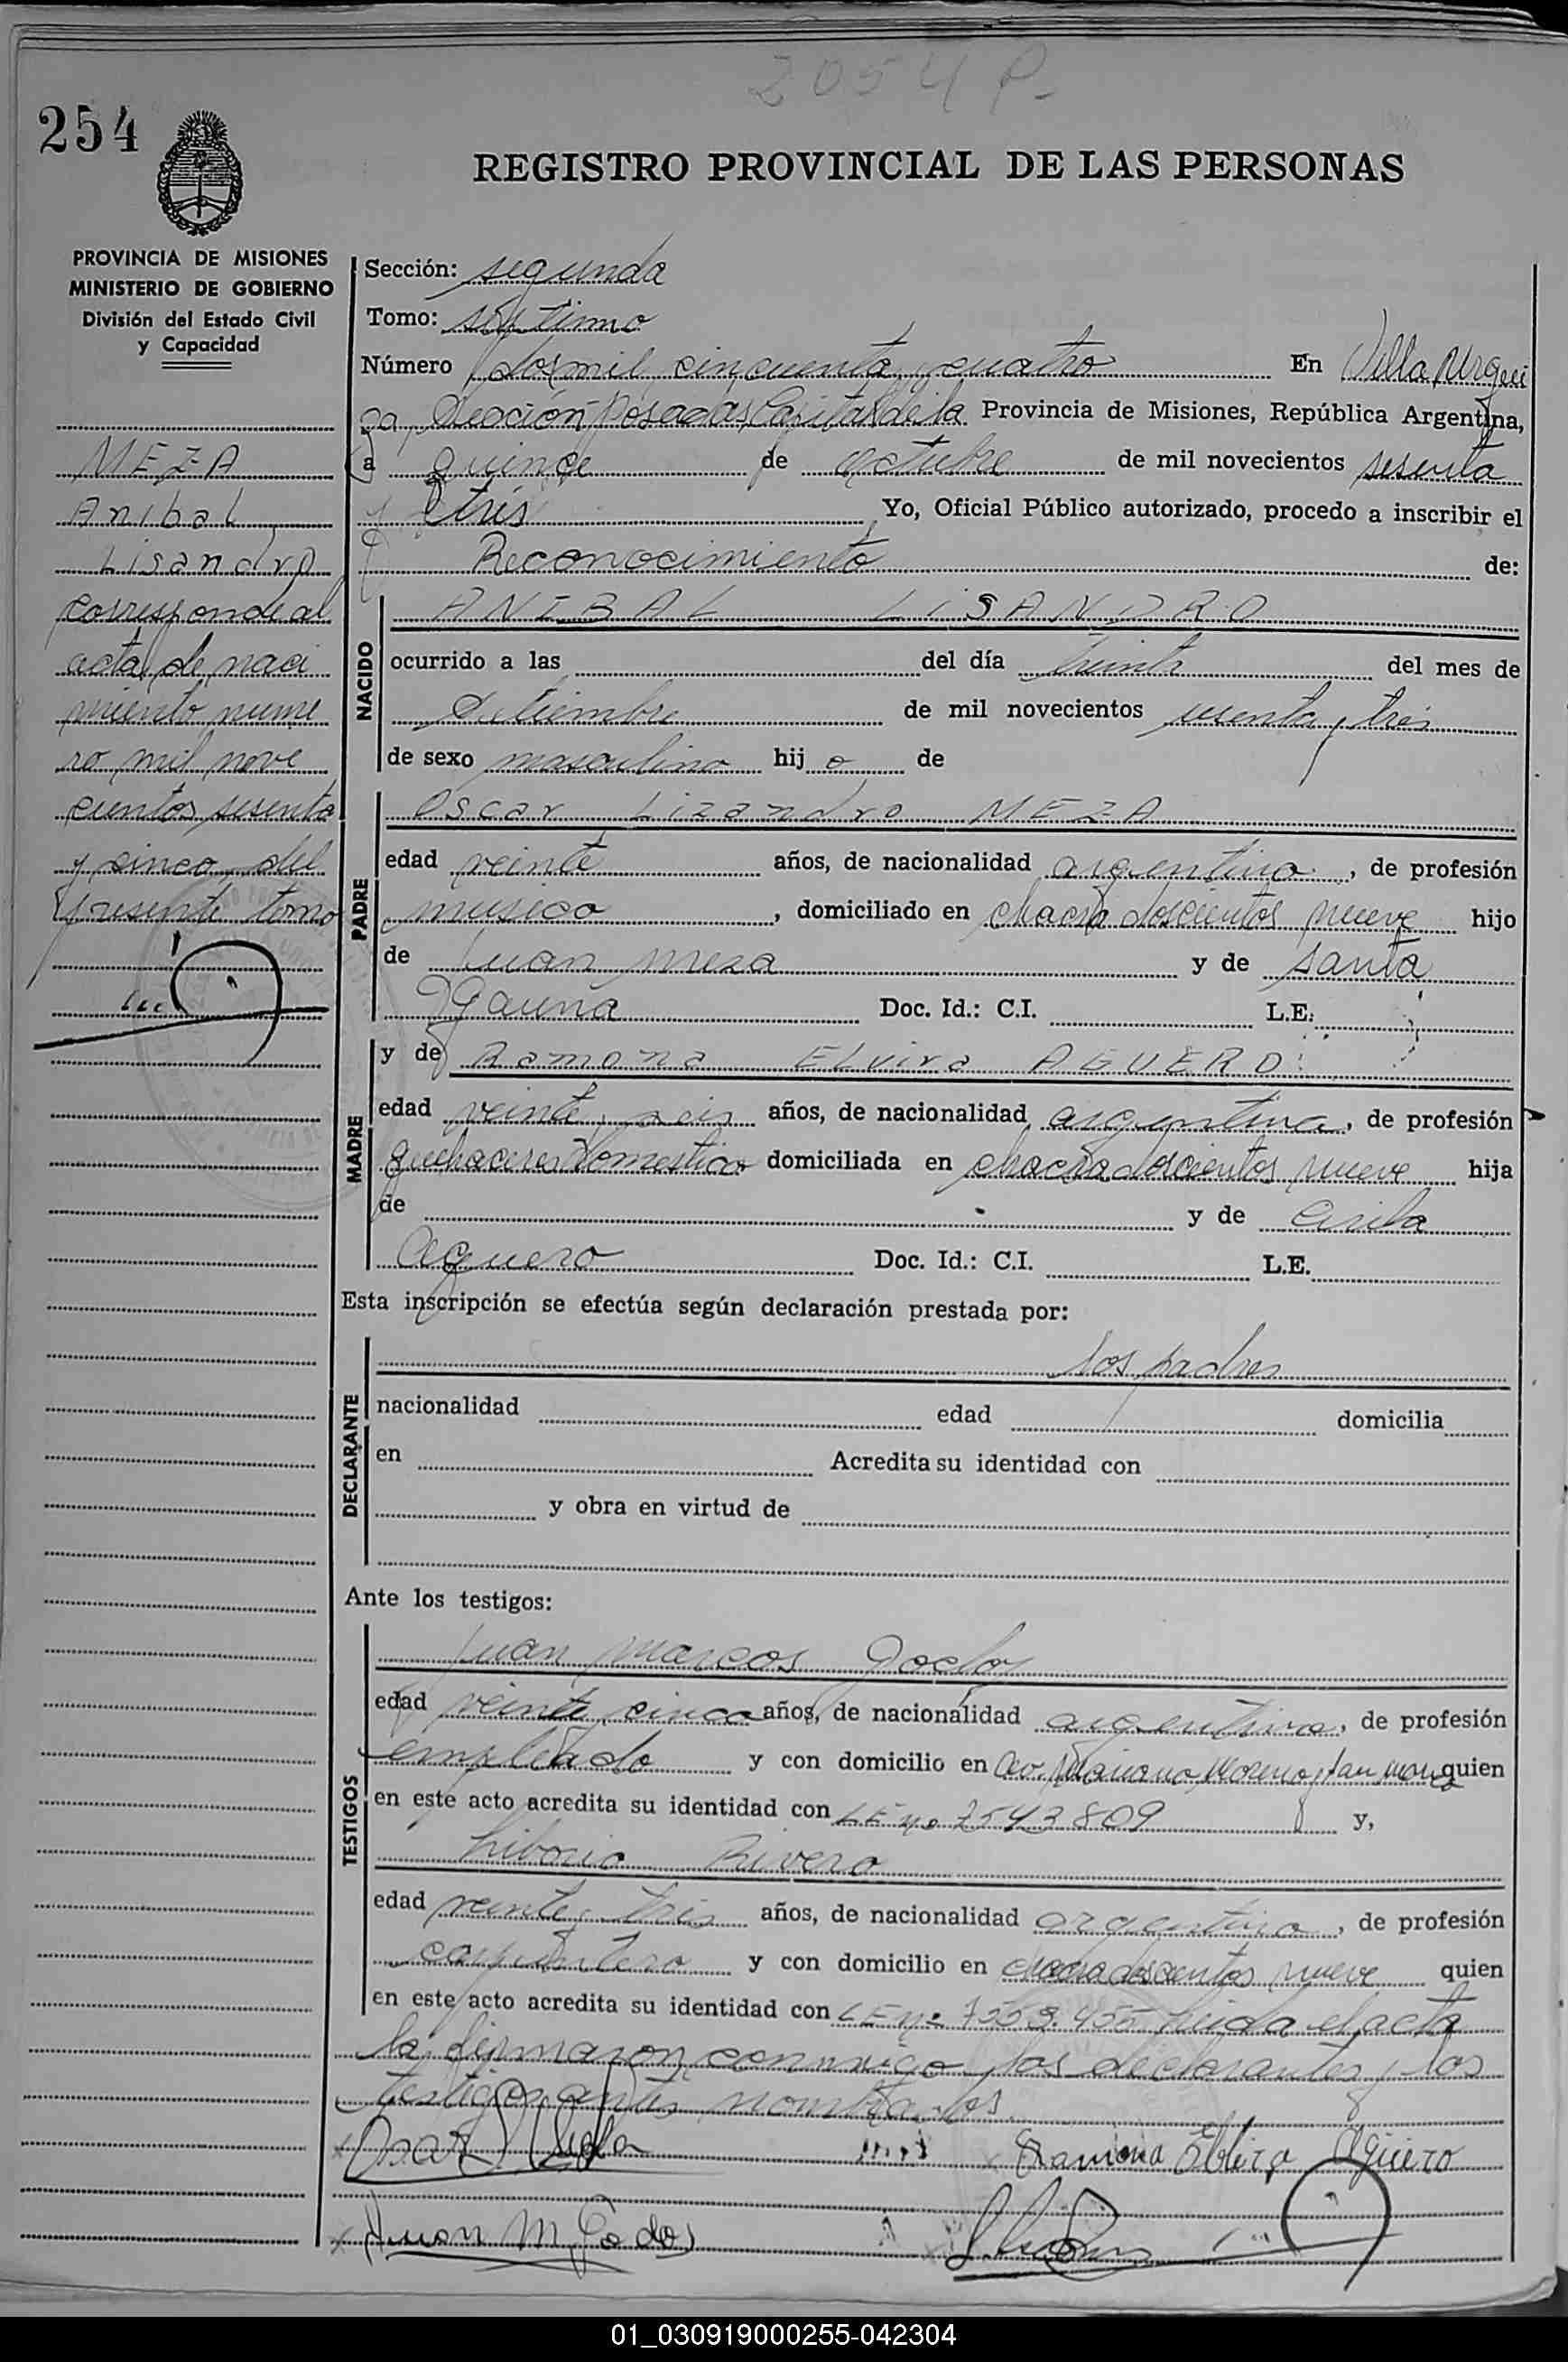 2054 P-
254
REGISTRO PROVINCIAL DE LAS PERSONAS
PROVINCIA DE MISIONES
MINISTERIO DE GOBIERNO
División del Estado Civil
y Capacidad
MEZA
Anibal
Lisandro
corresponde al
acta de naci
miento nume
ro mil nove
cientos sesenta
y cinco del
presente tomo
Sección: segunda
Tomo: séptimo
Número dosmil cincuenta y cuatro En Villa Urqui
za, Sección Posadas, Capital de la Provincia de Misiones, República Argentina,
a quince de octubre de mil novecientos sesenta
y tres Yo, Oficial Público autorizado, procedo a inscribir el
Reconocimiento de:
NACIDO
ANIBAL LISANDRO
ocurrido a las del día treinta del mes de
Setiembre de mil novecientos sesenta y tres
de sexo masculino hij o de
PADRE
Oscar Lizandro MEZA
edad veinte años, de nacionalidad argentino, de profesión
musico, domiciliado en chacra doscientos nueve hijo
de Juan meza y de Santa
Gauna Doc. Id.: C.I. L.E.
MADRE
y de Ramona Elvira AGUERO
edad veinte y seis años, de nacionalidad argentina, de profesión
quehaceres domestico domiciliada en chacra doscientos nueve hija
de y de
Aguero Doc. Id.: C.I. L.E.
Esta inscripción se efectúa según declaración prestada por:
DECLARANTE
los padres
nacionalidad edad domicilia
en Acredita su identidad con
y obra en virtud de
Ante los testigos:
TESTIGOS
Juan Marcos Godoy
edad veinte y cinco años, de nacionalidad argentino, de profesión
empleado y con domicilio en Av. Mariano Moreno y San quien
en este acto acredita su identidad con LE no 7543809 y,
Liborio Rivero
edad veinte y tres años, de nacionalidad argentino, de profesión
carpintero y con domicilio en chacra doscientos nueve quien
en este acto acredita su identidad con LE no 7553.455 leida el acta
la firmaron conmigo los declarantes y los
testigos antes nombrados
Oscar L Ramona Elvira Agüero
Juan M Godoy
01_030919000255-042304